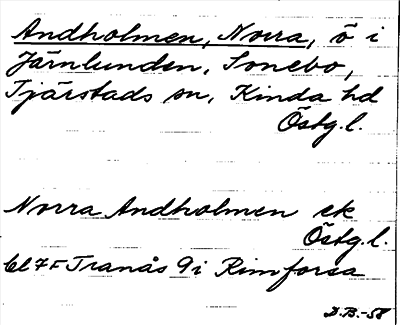 Andholmen, Norra, ö i
Järnlunden, Sonebo,
Tjärstads sn, Kinda hd
Östg.l.
Norra Andholmen ek
Östg.l.
bl 7F Tranås 9 i Rimforsa
D.B.-58